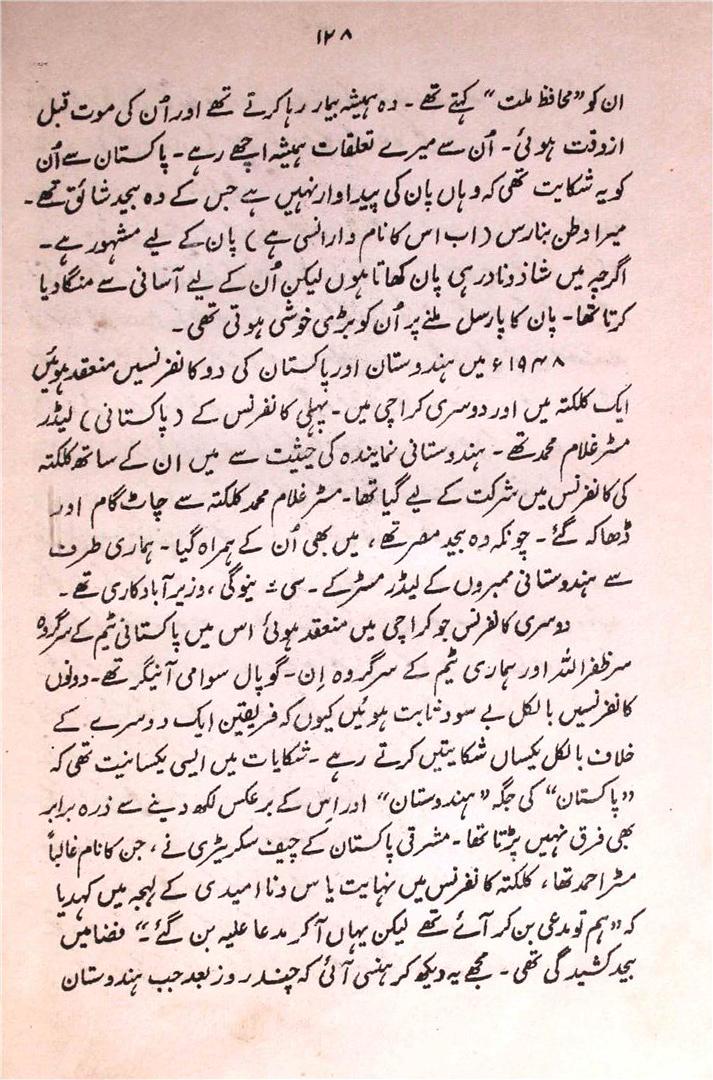 ۱۲۸
ان کو "محافظ ملت" کہتے تھے ۔ وہ ہمیشہ بیمار رہا کرتے تھے اور اُن کی موت قبل
از وقت ہوئی ۔ اُن سے میرے تعلقات ہمیشہ اچھے رہے ۔ پاکستان سے اُن
کو یہ شکایت تھی کہ وہاں پان کی پیداوار نہیں ہے جس کے وہ بیحد شائق تھے ۔
میرا وطن بنارس (اب اس کا نام وارانسی ہے) پان کے لیے مشہور ہے ۔
اگرچہ میں شاذ و نادر ہی پان کھاتا ہوں لیکن اُن کے لیے آسانی سے منگا دیا
کرتا تھا ۔ پان کا پارسل ملنے پر اُن کو بڑی خوشی ہوتی تھی ۔
۱۹۴۸ء میں ہندوستان اور پاکستان کی دو کانفرنسیں منعقد ہوئیں
ایک کلکتہ میں اور دوسری کراچی میں ۔ پہلی کانفرنس کے (پاکستانی) لیڈر
مسٹر غلام محمد تھے ۔ ہندوستانی نمایندہ کی حیثت سے میں ان کے ساتھ کلکتہ
کی کانفرنس میں شرکت کے لیے گیا تھا ۔ مسٹر غلام محمد کلکتہ سے چاٹ گام اور
ڈھاکہ گئے ۔ چونکہ وہ بیحد مصر تھے، میں بھی اُن کے ہمراہ گیا ۔ ہماری طرف
سے ہندوستانی ممبروں کے لیڈر مسٹر کے ۔ سی ۔ نیوگی، وزیر آبادکاری تھے ۔
دوسری کانفرنس جو کراچی میں منعقد ہوئی اس میں پاکستانی ٹیم کے سرگروہ
سر ظفر اللہ اور ہماری ٹیم کے سرگروہ اِن ۔ گوپال سوامی آئینگر تھے ۔ دونوں
کانفرنسیں بالکل بے سود ثابت ہوئیں کیوں کہ فریقین ایک دوسرے کے
خلاف بالکل یکساں شکایتیں کرتے رہے ۔ شکایات میں ایسی یکسانیت تھی کہ
"پاکستان" کی جگہ "ہندوستان" اور اِس کے برعکس لکھ دینے سے ذرہ برابر
بھی فرق نہیں پڑتا تھا ۔ مشرقی پاکستان کے چیف سکریٹری نے، جن کا نام غالباً
مسٹر احمد تھا، کلکتہ کانفرنس میں نہایت یاس و نا امیدی کے لہجہ میں کہدیا
کہ "ہم تو مدعی بن کر آئے تھے لیکن یہاں آ کر مدعا علیہ بن گئے ۔" فضا میں
بیحد کشیدگی تھی ۔ مجھے یہ دیکھ کر ہنسی آئی کہ چند روز بعد جب ہندوستان